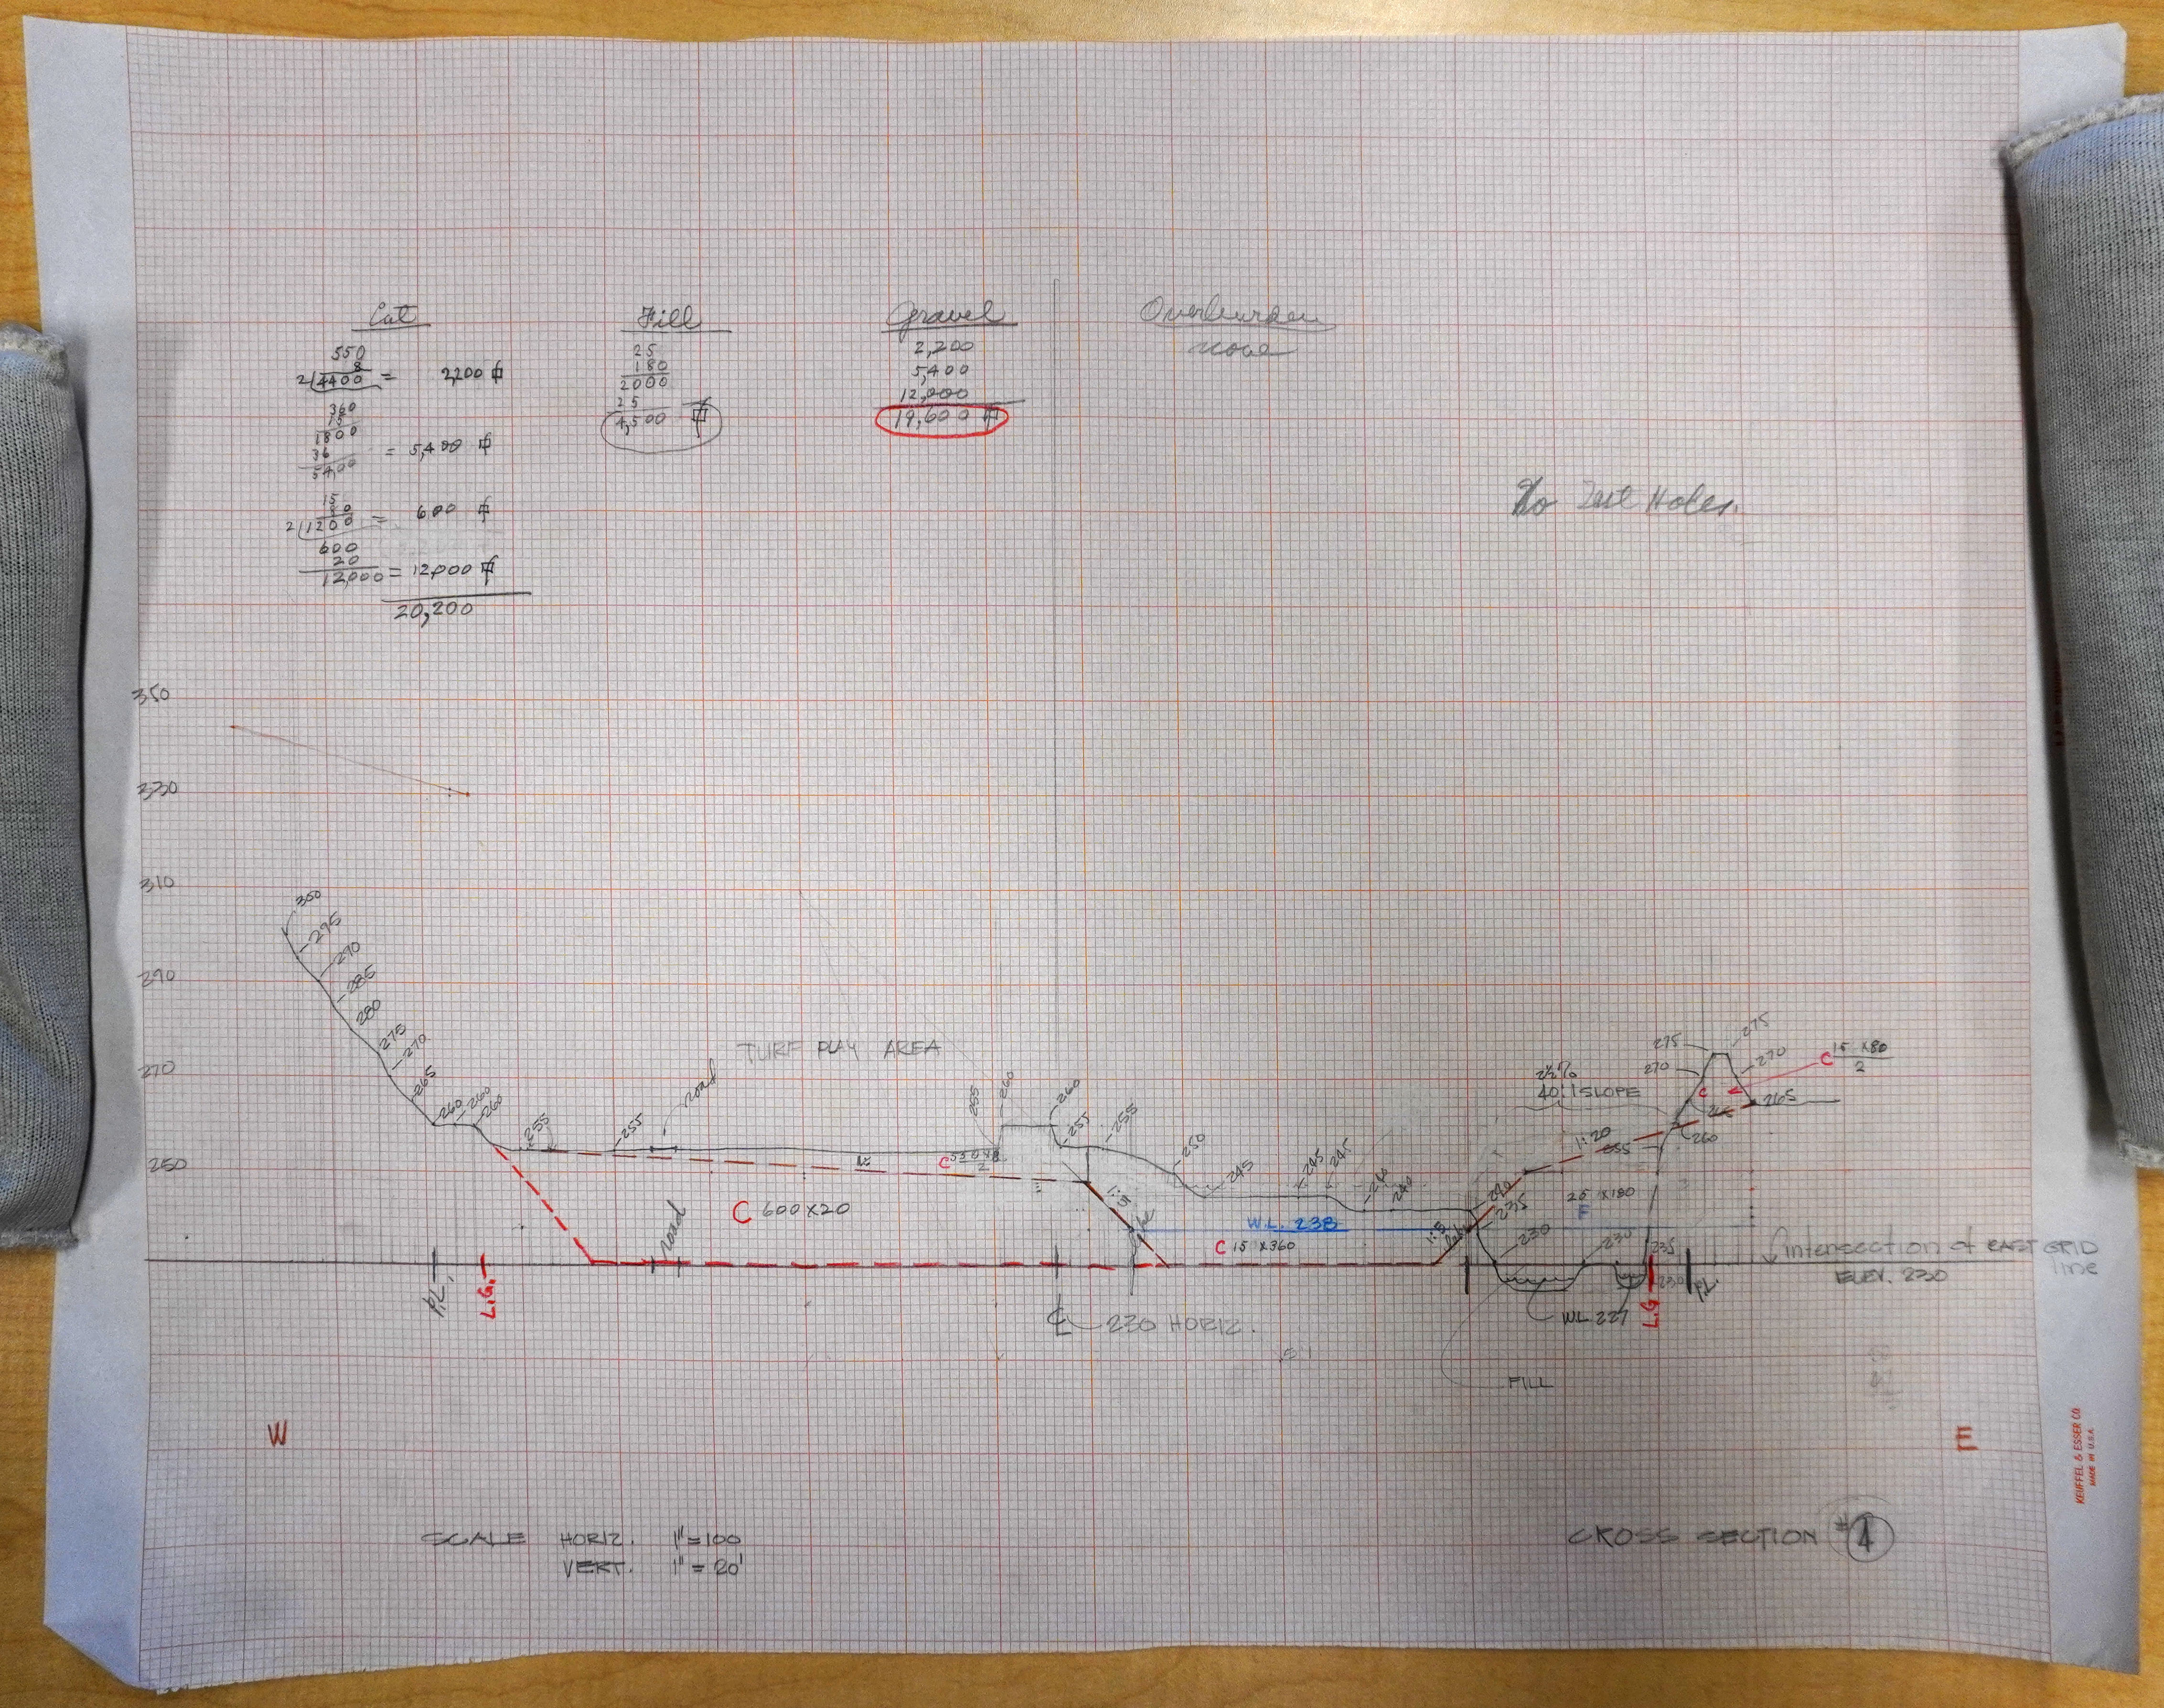 Cut
550
8
2/4400 = 2,200 ⌗
360
15
1800
36
5400 = 5,400 ⌗
15
80
2/1200 = 600 ⌗
600
20
12,000 = 12,000 ⌗
20,200
Fill
25
180
2000
25
4,500 ⌗
Gravel
2,200
5,400
12,000
19,600 ⌗
Overburden
none
No Test Holes.
350
330
310
290
270
250
300
295
290
285
280
275
270
265
260
260
260
255
255
road
TURF PLAY AREA
255
260
260
255
255
250
245
245
245
240
240
240
235
230
230
235
230
C 550x8
2
C 600x20
road
W.L. 238
C 15 x360
2½%
40:1 SLOPE
1:20
25 x180
F
275
275
270
270
C 15 x80
2
C
265
265
260
255
P.L.
L.G.
℄ 230 HORIZ.
W.L. 227
L.G.
P.L.
intersection of EAST GRID
line
ELEV. 230
FILL
W
E
SCALE HORIZ. 1"=100
VERT. 1"=20'
CROSS SECTION #4
KEUFFEL & ESSER CO.
MADE IN U.S.A.